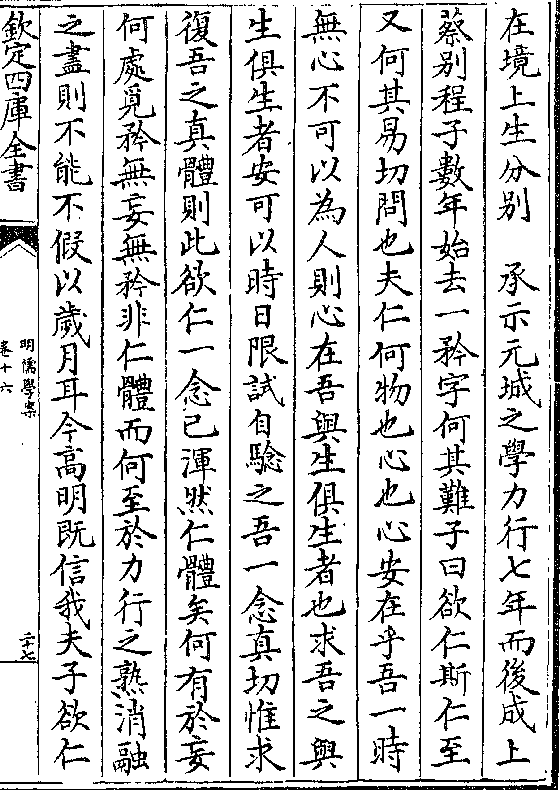 在境上生分别　承示元城之學力行七年而後成上
蔡别程子數年始去一矜字何其難子曰欲仁斯仁至
又何其易切問也夫仁何物也心也心安在乎吾一時
無心不可以為人則心在吾與生俱生者也求吾之與
生俱生者安可以時日限試自驗之吾一念真切惟求
復吾之真體則此欲仁一念已渾然仁體矣何有於妄
何處覓矜無妄無矜非仁體而何至於力行之熟消融
之盡則不能不假以歲月耳今高明既信我夫子欲仁
欽定四庫全書
明儒學案
卷十六
三十七